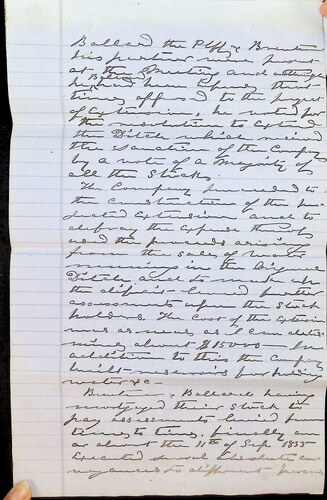 Ballard the Plff & Brenton
his partner were present
at the Meeting and although
Ballard had been up to this
time opposed to the project
of Extension, he voted for
the resolution to Extend
the Ditch which received
the sanction of the Company
by a vote of a Majority of
all the Stocks.
The Company proceeded to
the Construction of the pro
jected Extension and to
defray the expense thereof
used the proceeds arising
from the sales of water
running in the Original
Ditch and to make up
the deficit levied further
assessments upon the Stock
holders. The Cost of the Extension
was as near as I can deter
mine about $15000 - In
addition to this the Company
built reservoirs for holding
water &c -
Brenton & Ballard having
mortgaged their Stock to
pay assessments levied from
time to time, finally on
or about the 11th of Sep 1855
Executed several absolute con
veyances to different persons